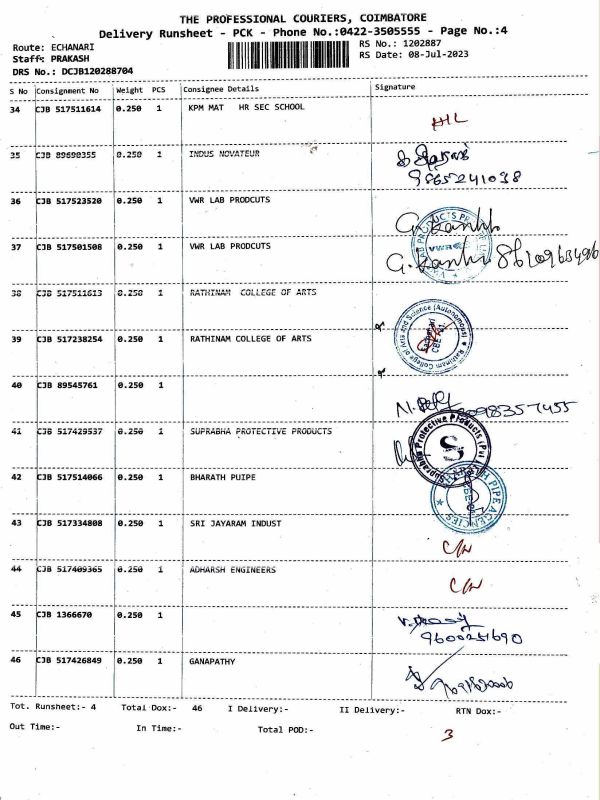 THE PROFESSIONAL COURIERS, COIMBATORE
Delivery Runsheet - PCK - Phone No.:0422-3505555 - Page No.:4
Route: ECHANARI RS No.: 1202887
Staff: PRAKASH RS Date: 08-Jul-2023
DRS No.: DCJB120288704
S No Consignment No Weight PCS Consignee Details Signature
34 CJB 517511614 0.250 1 KPM MAT HR SEC SCHOOL
35 CJB 89690355 0.250 1 INDUS NOVATEUR
9865241038
36 CJB 517523520 0.250 1 VWR LAB PRODCUTS
37 CJB 517501508 0.250 1 VWR LAB PRODCUTS
38 CJB 517511613 0.250 1 RATHINAM COLLEGE OF ARTS
39 CJB 517238254 0.250 1 RATHINAM COLLEGE OF ARTS
Rathinam College of Arts and Science (Autonomous)
40 CJB 89545761 0.250 1
41 CJB 517429537 0.250 1 SUPRABHA PROTECTIVE PRODUCTS
Suprabha Protective Products (Pvt) S
42 CJB 517514066 0.250 1 BHARATH PUIPE
PIPE AGENCIES
43 CJB 517334808 0.250 1 SRI JAYARAM INDUST
44 CJB 517409365 0.250 1 ADHARSH ENGINEERS
45 CJB 1366670 0.250 1
46 CJB 517426849 0.250 1 GANAPATHY
Tot. Runsheet:- 4 Total Dox:- 46 I Delivery:- II Delivery:- RTN Dox:-
Out Time:- In Time:- Total POD:- 3